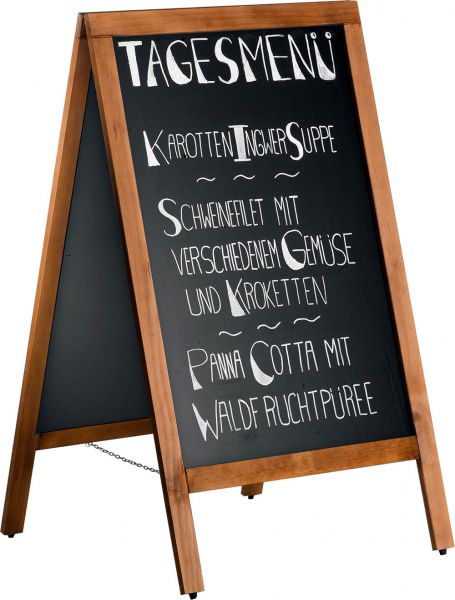 TAGESMENÜ
KAROTTENINGWERSUPPE
SCHWEINEFILET MIT
VERSCHIEDENEM GEMÜSE
UND KROKETTEN
PANNA COTTA MIT
WALDFRUCHTPÜREE